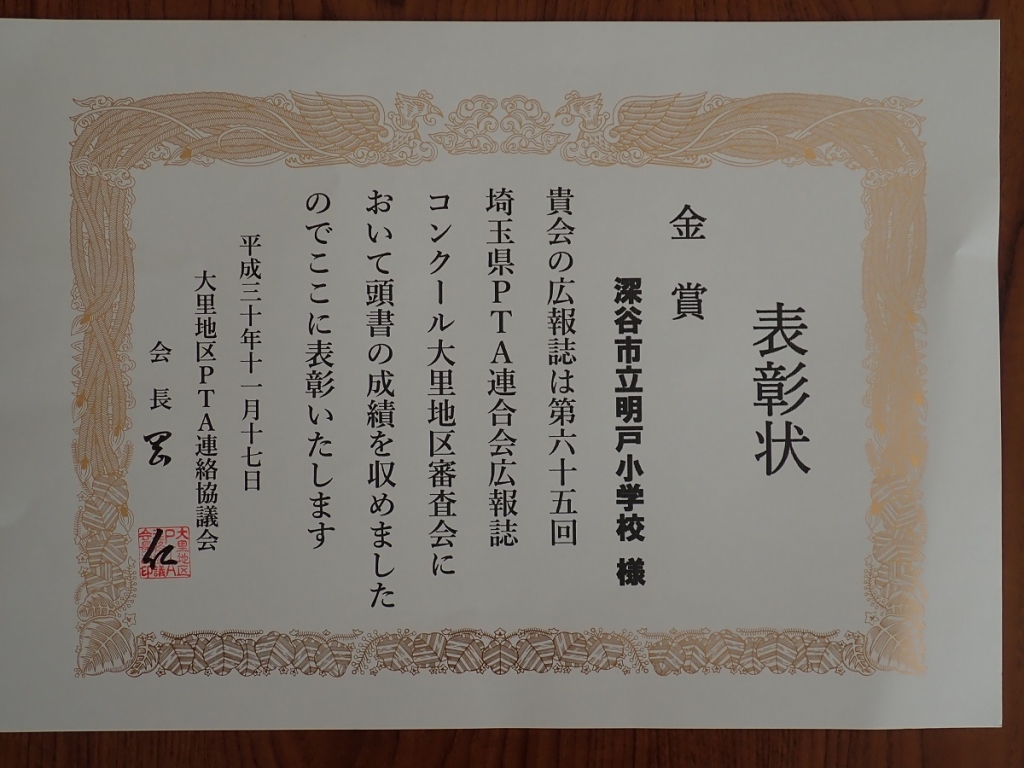 表彰状
金賞
深谷市立明戸小学校 様
貴会の広報誌は第六十五回
埼玉県PTA連合会広報誌
コンクール大里地区審査会に
おいて頭書の成績を収めました
のでここに表彰いたします
平成三十年十一月十七日
大里地区PTA連絡協議会
会長
仁